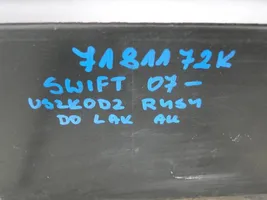 7181172K
SWIFT 07-
USZKODZ RYSY
DO LAK AU